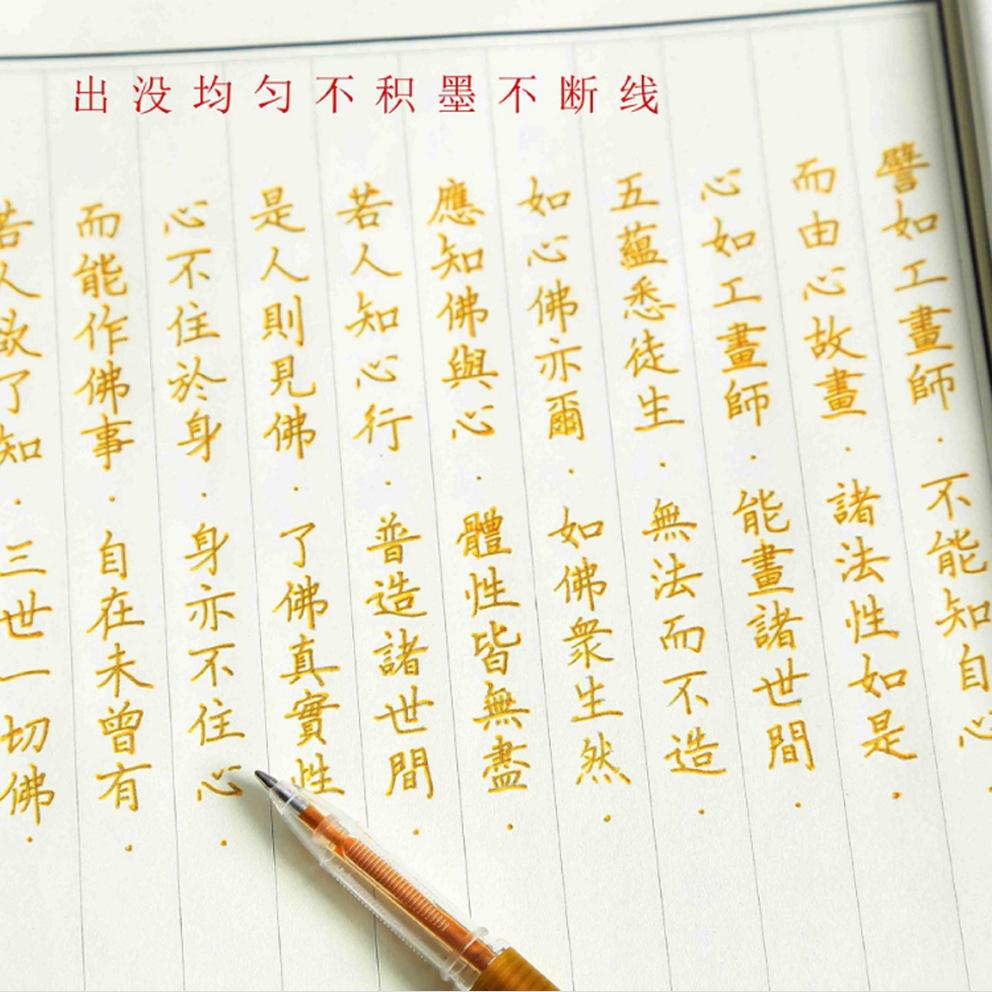 出没均匀不积墨不断线
譬如工畫師．不能知自心．
而由心故畫．諸法性如是．
心如工畫師．能畫諸世間．
五蘊悉徒生．無法而不造．
如心佛亦爾．如佛衆生然．
應知佛與心．體性皆無盡．
若人知心行．普造諸世間．
是人則見佛．了佛真實性
心不住於身．身亦不住心．
而能作佛事．自在未曾有．
若人欲了知．三世一切佛．